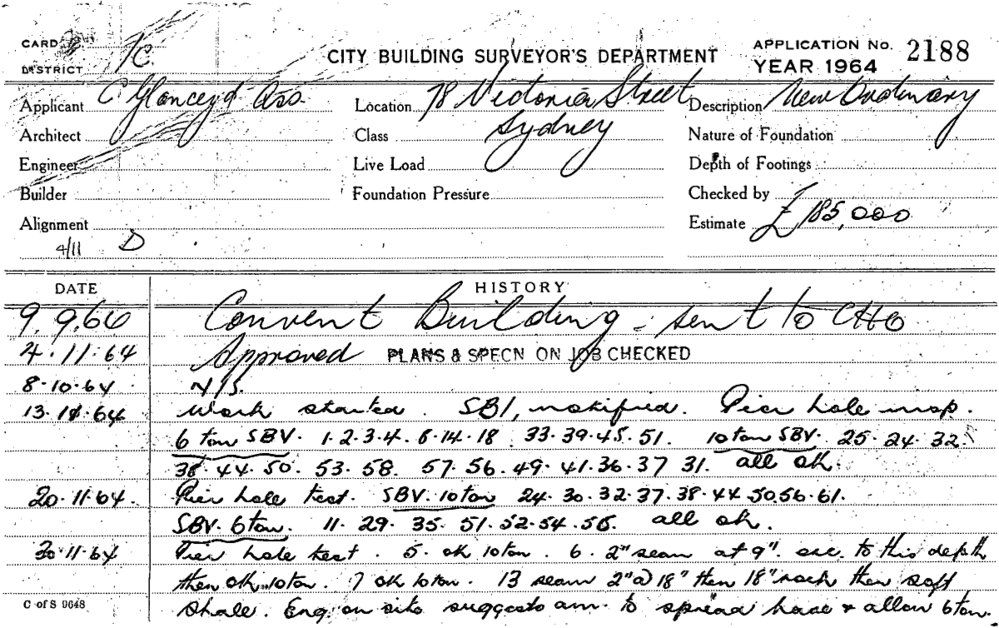 CARD
DISTRICT 1C.
CITY BUILDING SURVEYOR'S DEPARTMENT
APPLICATION No. 2188
YEAR 1964
Applicant C Glancey & Ass.
Location 78 Victoria Street
Description New Ordinary
Architect
Class Sydney
Nature of Foundation
Engineer
Live Load
Depth of Footings
Builder
Foundation Pressure
Checked by
Alignment
Estimate £ 185,000
4/11 D
DATE HISTORY
9.9.66 Convent Building - sent to CHO
4.11.64 Approved PLANS & SPECN ON JOB CHECKED
8.10.64 N/S.
13.11.64 Work started. SBI, notified. Pier hole insp.
6 ton SBV. 1.2.3.4. 8.14.18 33.39.45.51. 10 ton SBV. 25.24.32.
38.44.50. 53.58. 57.56.49.41.36.37 31. all ok.
20.11.64. Pier hole test. SBV. 10 ton 24.30.32.37.38.44.50.56.61.
SBV. 6 ton. 11.29.35.51.52.54.55. all ok.
30.11.64 Pier hole test. 5. ok 10 ton. 6. 2" seam at 9". exc. to this depth
then ok 10 ton. 7 ok 10 ton. 13 seam 2" @ 18" then 18" rock then soft
shale. Eng. on site suggests am. to spread base & allow 6 ton.
C of S 9648